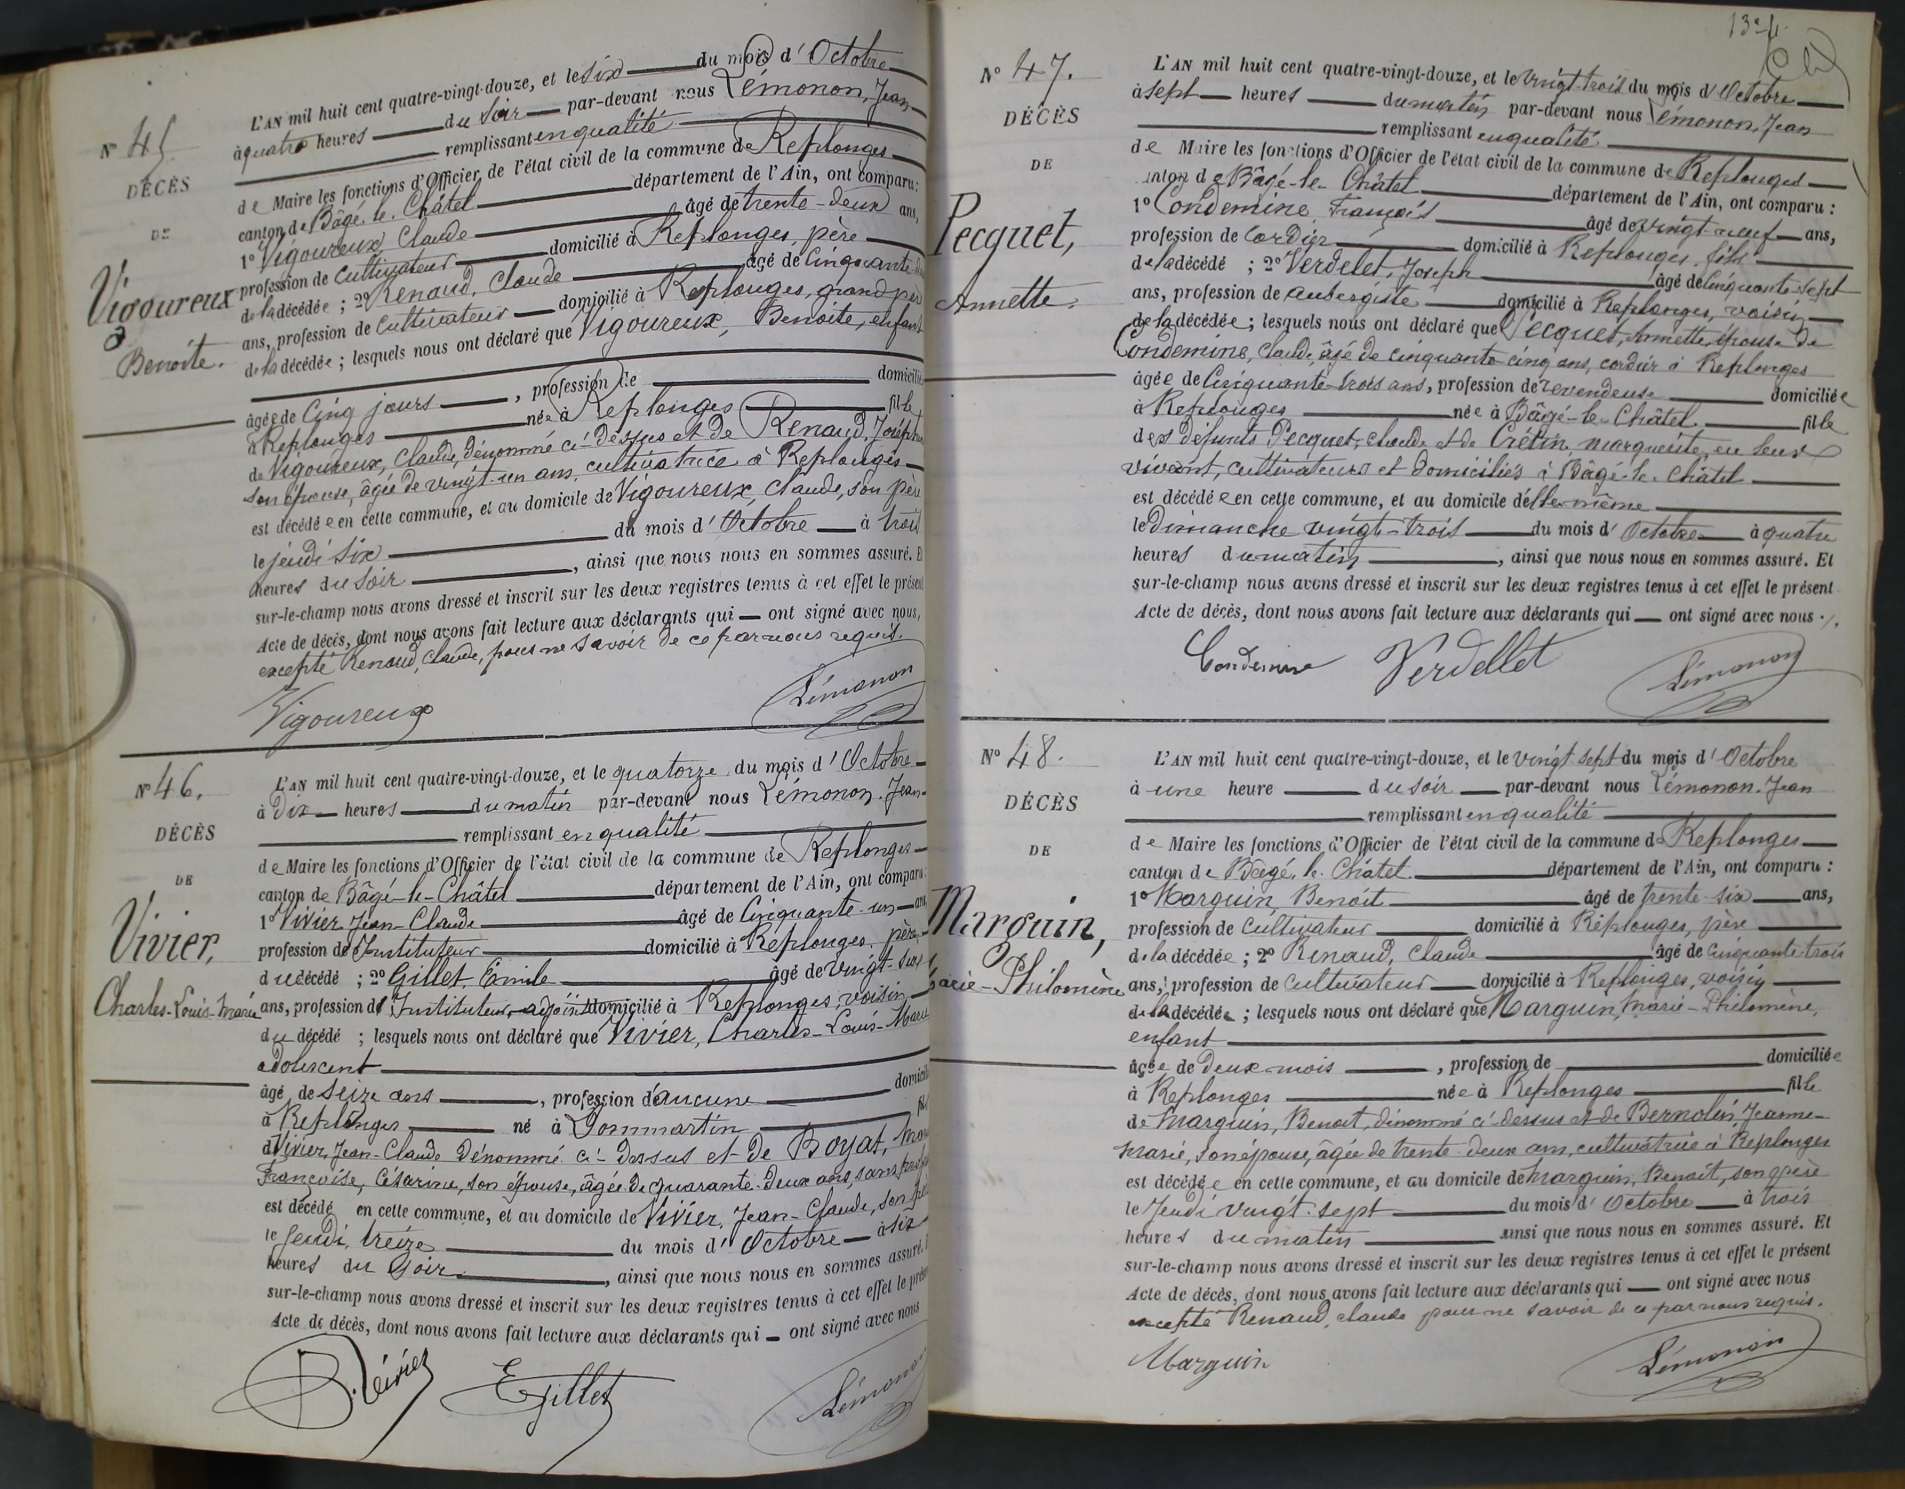 N° 45
DÉCÈS
DE
Vigoureux
Benoite.
L'AN mil huit cent quatre-vingt-douze, et le six du mois d'Octobre
à quatre heures du soir par-devant nous Lémonon, Jean
remplissant en qualité
de Maire les fonctions d'Officier de l'état civil de la commune de Replonges
canton de Bâgé-le-Châtel département de l'Ain, ont comparu :
1° Vigoureux, Claude âgé de trente-deux ans,
profession de cultivateur domicilié à Replonges, père
de la décédée ; 2° Renaud, Claude âgé de cinquante
ans, profession de cultivateur domicilié à Replonges, grand père
de la décédée ; lesquels nous ont déclaré que Vigoureux, Benoite, enfant
, profession de domicilié
âgée de cinq jours
à Replonges née à Replonges fille
de Vigoureux, Claude, dénommé ci-dessus et de Renaud, Joséphine
son épouse, âgée de vingt-un ans, cultivatrice à Replonges
est décédée en cette commune, et au domicile de Vigoureux, Claude, son père
le jeudi six du mois d'Octobre à trois
heures du soir , ainsi que nous nous en sommes assuré. Et
sur-le-champ nous avons dressé et inscrit sur les deux registres tenus à cet effet le présent
Acte de décès, dont nous avons fait lecture aux déclarants qui ont signé avec nous,
excepté Renaud, Claude, pour ne savoir de ce par nous requis.
Vigoureux Lémonon
N° 46.
DÉCÈS
DE
Vivier,
Charles-Louis-Marie
L'AN mil huit cent quatre-vingt-douze, et le quatorze du mois d'Octobre
à dix heures du matin par-devant nous Lémonon, Jean
remplissant en qualité
de Maire les fonctions d'Officier de l'état civil de la commune de Replonges
canton de Bâgé-le-Châtel département de l'Ain, ont comparu :
1° Vivier, Jean-Claude âgé de cinquante-un ans
profession de Instituteur domicilié à Replonges, père
du décédé ; 2° Gillet, Emile âgé de vingt-
ans, profession d'Instituteur-adjoint domicilié à Replonges, voisin
du décédé ; lesquels nous ont déclaré que Vivier, Charles-Louis-Marie
adolescent
âgé de seize ans , profession d'aucune domicilié
à Replonges né à Dommartin fils
de Vivier, Jean-Claude dénommé ci-dessus et de Boyat, Marie
Françoise, Césarine, son épouse, âgée de quarante-deux ans, sans
est décédé en cette commune, et au domicile de Vivier, Jean-Claude, son père
le Jeudi, treize du mois d'Octobre à six
heures du soir , ainsi que nous nous en sommes assuré. Et
sur-le-champ nous avons dressé et inscrit sur les deux registres tenus à cet effet le présent
Acte de décès, dont nous avons fait lecture aux déclarants qui ont signé avec nous
Vivier E Gillet Lémonon
13e f.
N° 47.
DÉCÈS
DE
Pecquet,
Annette.
L'AN mil huit cent quatre-vingt-douze, et le vingt-trois du mois d'Octobre
à sept heures du matin par-devant nous Lémonon, Jean
remplissant en qualité
de Maire les fonctions d'Officier de l'état civil de la commune de Replonges
canton de Bâgé-le-Châtel département de l'Ain, ont comparu :
1° Condemine, François âgé de vingt-neuf ans,
profession de cordier domicilié à Replonges, fils
de la décédé ; 2° Verdelet, Joseph âgé de cinquante-sept
ans, profession de aubergiste domicilié à Replonges, voisin
de la décédée ; lesquels nous ont déclaré que Pecquet, Annette, épouse de
Condemine, Claude, âgé de cinquante cinq ans, cordier à Replonges
âgée de cinquante-trois ans, profession de revendeuse domiciliée
à Replonges née à Bâgé-le-Châtel fille
des défunts Pecquet, Claude et de Crétin, marguerite, en leurs
vivant, cultivateurs et domiciliés à Bâgé-le-Châtel
est décédée en cette commune, et au domicile d'elle-même
le Dimanche vingt-trois du mois d'Octobre à quatre
heures du matin , ainsi que nous nous en sommes assuré. Et
sur-le-champ nous avons dressé et inscrit sur les deux registres tenus à cet effet le présent
Acte de décès, dont nous avons fait lecture aux déclarants qui ont signé avec nous ./.
Condemine Verdellet Lémonon
N° 48.
DÉCÈS
DE
Marguin,
Marie-Philomène
L'AN mil huit cent quatre-vingt-douze, et le vingt sept du mois d'Octobre
à une heure du soir par-devant nous Lémonon, Jean
remplissant en qualité
de Maire les fonctions d'Officier de l'état civil de la commune de Replonges
canton de Bâgé-le-Châtel département de l'Ain, ont comparu :
1° Marguin, Benoit âgé de trente-six ans,
profession de cultivateur domicilié à Replonges, père
de la décédée ; 2° Renaud, Claude âgé de cinquante-trois
ans, profession de cultivateur domicilié à Replonges, voisin
de la décédée ; lesquels nous ont déclaré que Marguin, Marie-Philomène,
enfant
âgée de deux mois , profession de domiciliée
à Replonges née à Replonges fille
de Marguin, Benoit, dénommé ci-dessus et de Bernolin, Jeanne-
Marie, son épouse, âgée de trente-deux ans, cultivatrice à Replonges
est décédée en cette commune, et au domicile de Marguin, Benoit, son père
le Jeudi vingt-sept du mois d'Octobre à trois
heures du matin ainsi que nous nous en sommes assuré. Et
sur-le-champ nous avons dressé et inscrit sur les deux registres tenus à cet effet le présent
Acte de décès, dont nous avons fait lecture aux déclarants qui ont signé avec nous
excepté Renaud, Claude pour ne savoir de ce par nous requis.
Marguin Lémonon